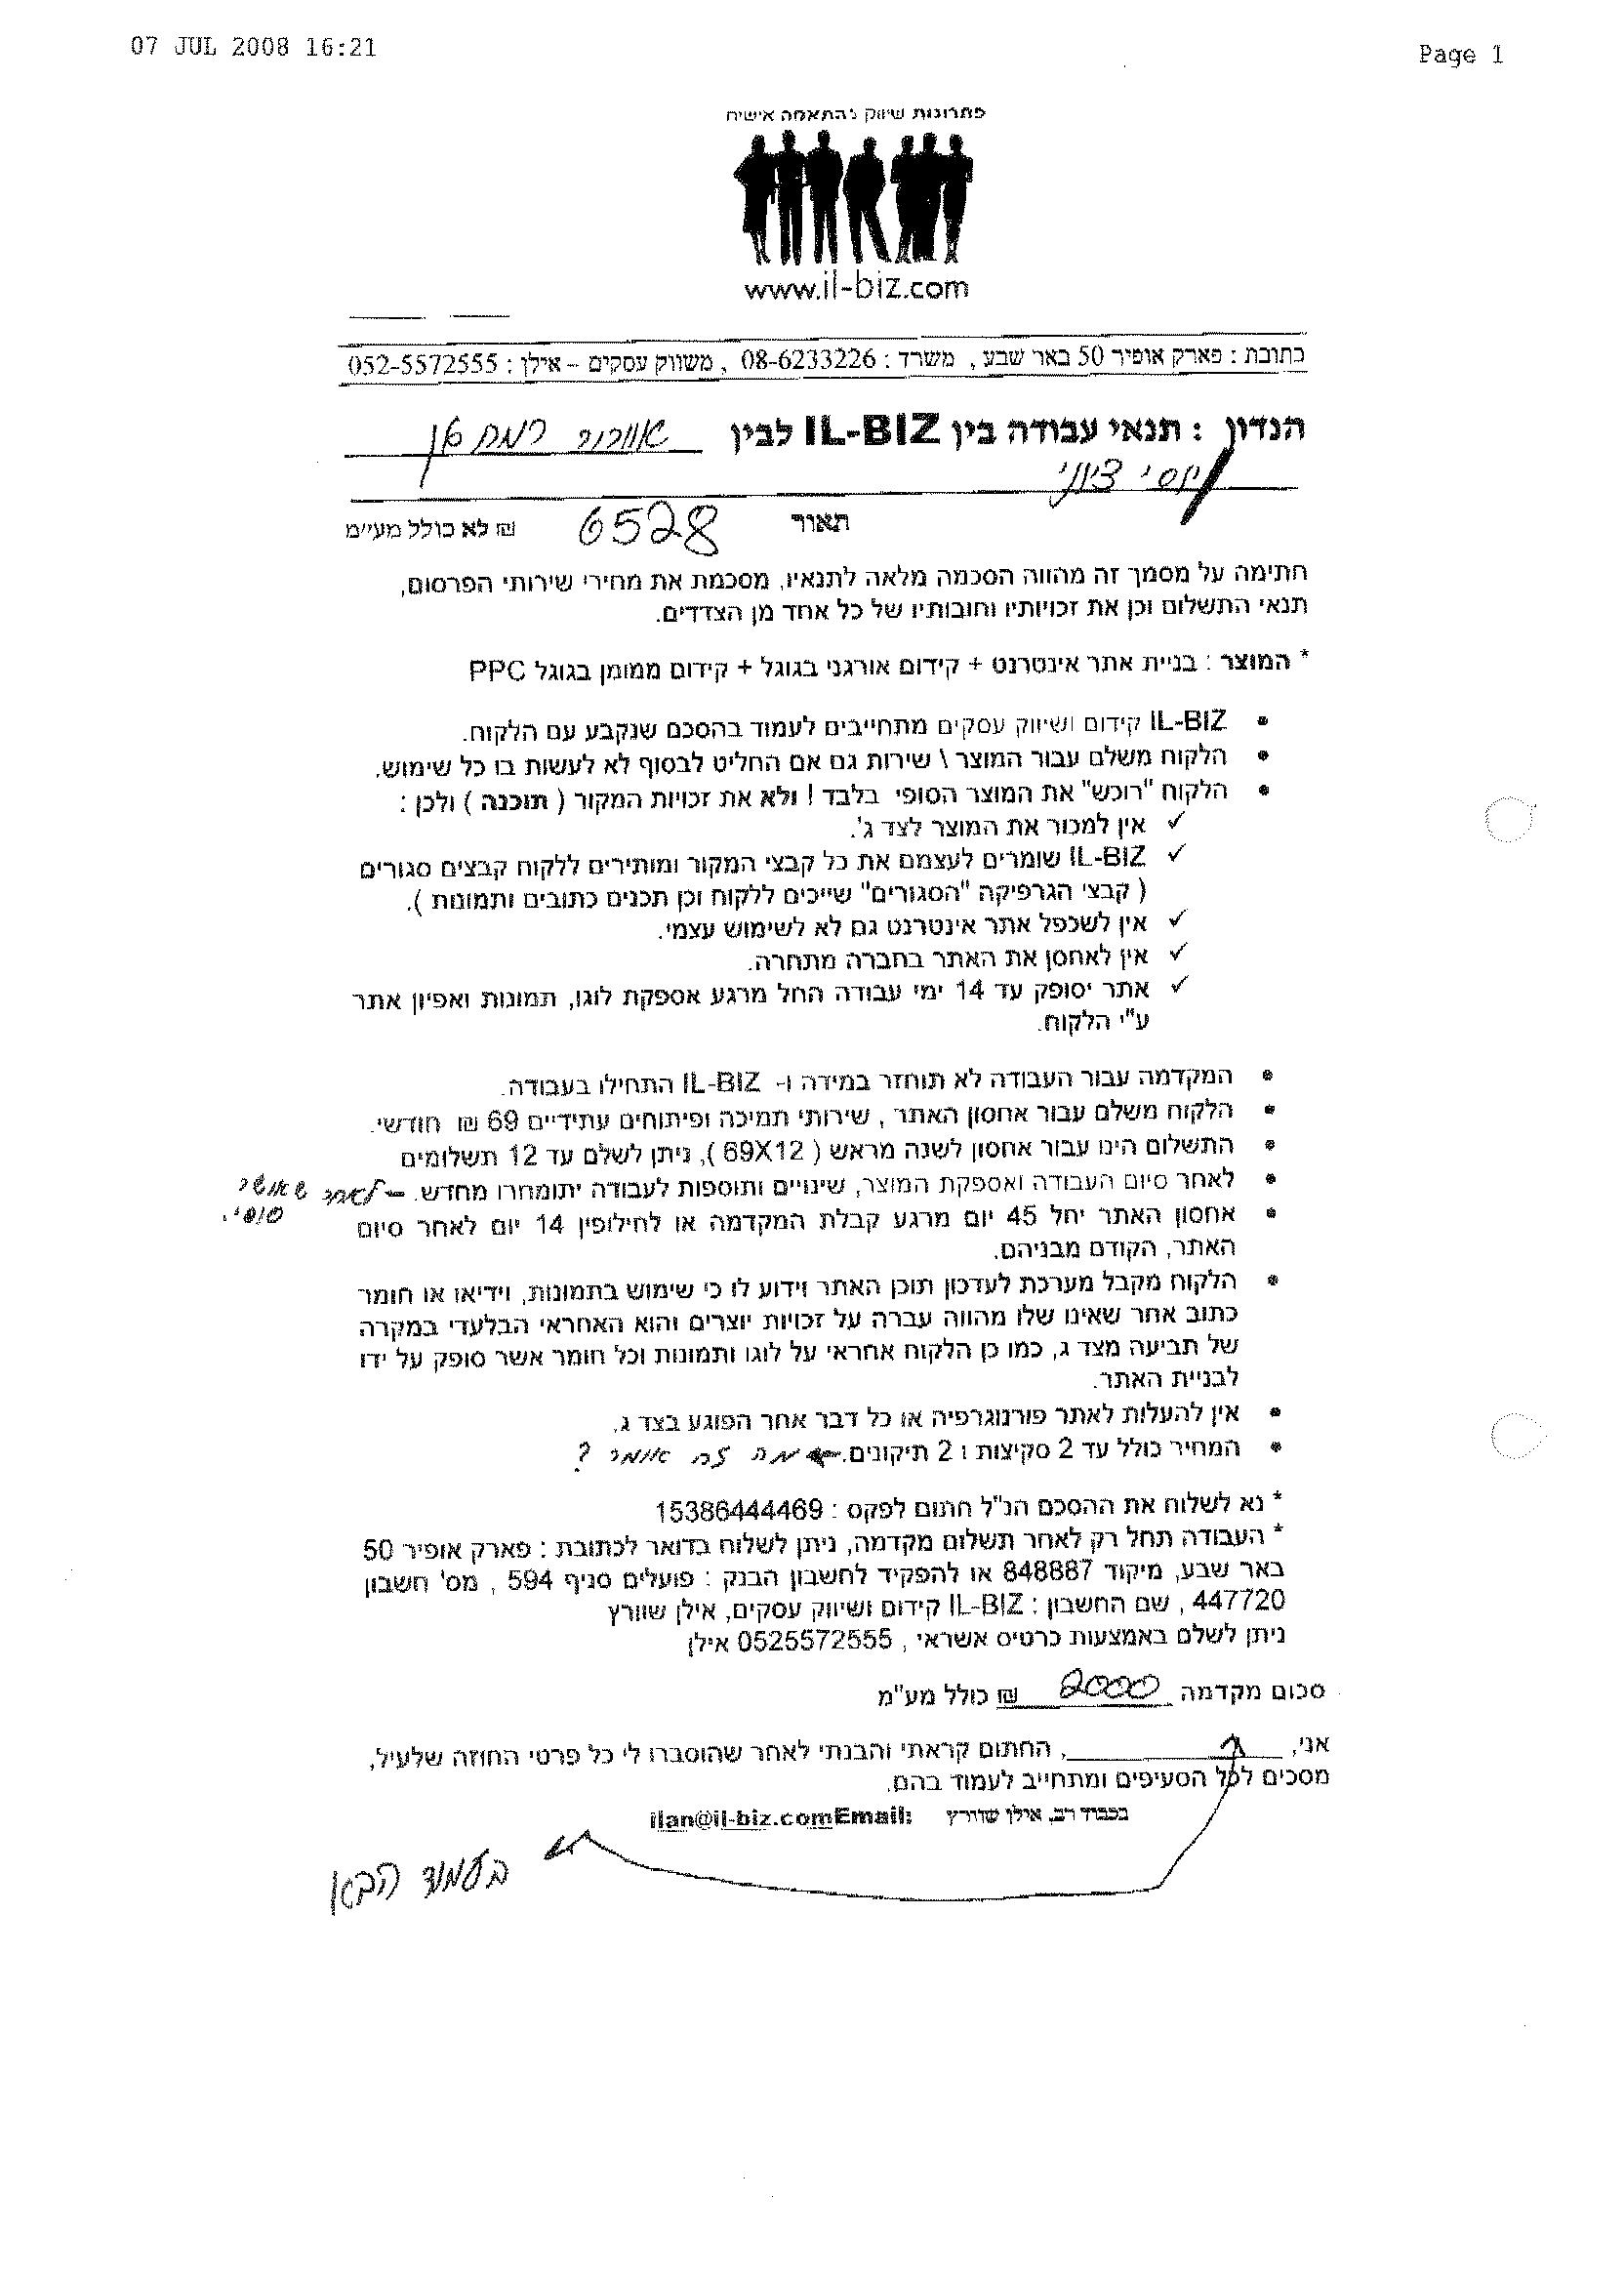 07 JUL 2008 16:21
Page 1
פתרונות שיווק בהתאמה אישית
www.il-biz.com
כתובת : פארק אופיר 50 באר שבע , משרד : 08-6233226 , משווק עסקים – אילן : 052-5572555
הנדון : תנאי עבודה בין IL-BIZ לבין רמת גן
יוסי
תאור 6528 ₪ לא כולל מע״מ
חתימה על מסמך זה מהווה הסכמה מלאה לתנאיו, מסכמת את מחירי שירותי הפרסום,
תנאי התשלום וכן את זכויותיו וחובותיו של כל אחד מן הצדדים.
* המוצר : בניית אתר אינטרנט + קידום אורגני בגוגל + קידום ממומן בגוגל PPC
• IL-BIZ קידום ושיווק עסקים מתחייבים לעמוד בהסכם שנקבע עם הלקוח.
• הלקוח משלם עבור המוצר \ שירות גם אם החליט לבסוף לא לעשות בו כל שימוש.
• הלקוח "רוכש" את המוצר הסופי בלבד ! ולא את זכויות המקור ( תוכנה ) ולכן :
✓ אין למכור את המוצר לצד ג'.
✓ IL-BIZ שומרים לעצמם את כל קבצי המקור ומותירים ללקוח קבצים סגורים
( קבצי הגרפיקה "הסגורים" שייכים ללקוח וכן תכנים כתובים ותמונות ).
✓ אין לשכפל אתר אינטרנט גם לא לשימוש עצמי.
✓ אין לאחסן את האתר בחברה מתחרה.
✓ אתר יסופק עד 14 ימי עבודה החל מרגע אספקת לוגו, תמונות ואפיון אתר
ע"י הלקוח.
• המקדמה עבור העבודה לא תוחזר במידה ו- IL-BIZ התחילו בעבודה.
• הלקוח משלם עבור אחסון האתר , שירותי תמיכה ופיתוחים עתידיים 69 ₪ חודשי.
• התשלום הינו עבור אחסון לשנה מראש ( 69X12 ), ניתן לשלם עד 12 תשלומים
• לאחר סיום העבודה ואספקת המוצר, שינויים ותוספות לעבודה יתומחרו מחדש. – לאחר שאושר
סופי.
• אחסון האתר יחל 45 יום מרגע קבלת המקדמה או לחילופין 14 יום לאחר סיום
האתר, הקודם מבניהם.
• הלקוח מקבל מערכת לעדכון תוכן האתר וידוע לו כי שימוש בתמונות, וידיאו או חומר
כתוב אחר שאינו שלו מהווה עברה על זכויות יוצרים והוא האחראי הבלעדי במקרה
של תביעה מצד ג, כמו כן הלקוח אחראי על לוגו ותמונות וכל חומר אשר סופק על ידו
לבניית האתר.
• אין להעלות לאתר פורנוגרפיה או כל דבר אחר הפוגע בצד ג,
• המחיר כולל עד 2 סקיצות ו 2 תיקונים. ← מה זה אומר ?
* נא לשלוח את ההסכם הנ"ל חתום לפקס : 15386444469
* העבודה תחל רק לאחר תשלום מקדמה, ניתן לשלוח בדואר לכתובת : פארק אופיר 50
באר שבע, מיקוד 848887 או להפקיד לחשבון הבנק : פועלים סניף 594 , מס' חשבון
447720 , שם החשבון : IL-BIZ קידום ושיווק עסקים, אילן שוורץ
ניתן לשלם באמצעות כרטיס אשראי , 0525572555 אילן
סכום מקדמה 2000 ₪ כולל מע"מ
אני, , החתום קראתי והבנתי לאחר שהוסברו לי כל פרטי החוזה שלעיל,
מסכים לכל הסעיפים ומתחייב לעמוד בהם.
בכבוד רב, אילן שוורץ ilan@il-biz.comEmail:
בעמוד הבא